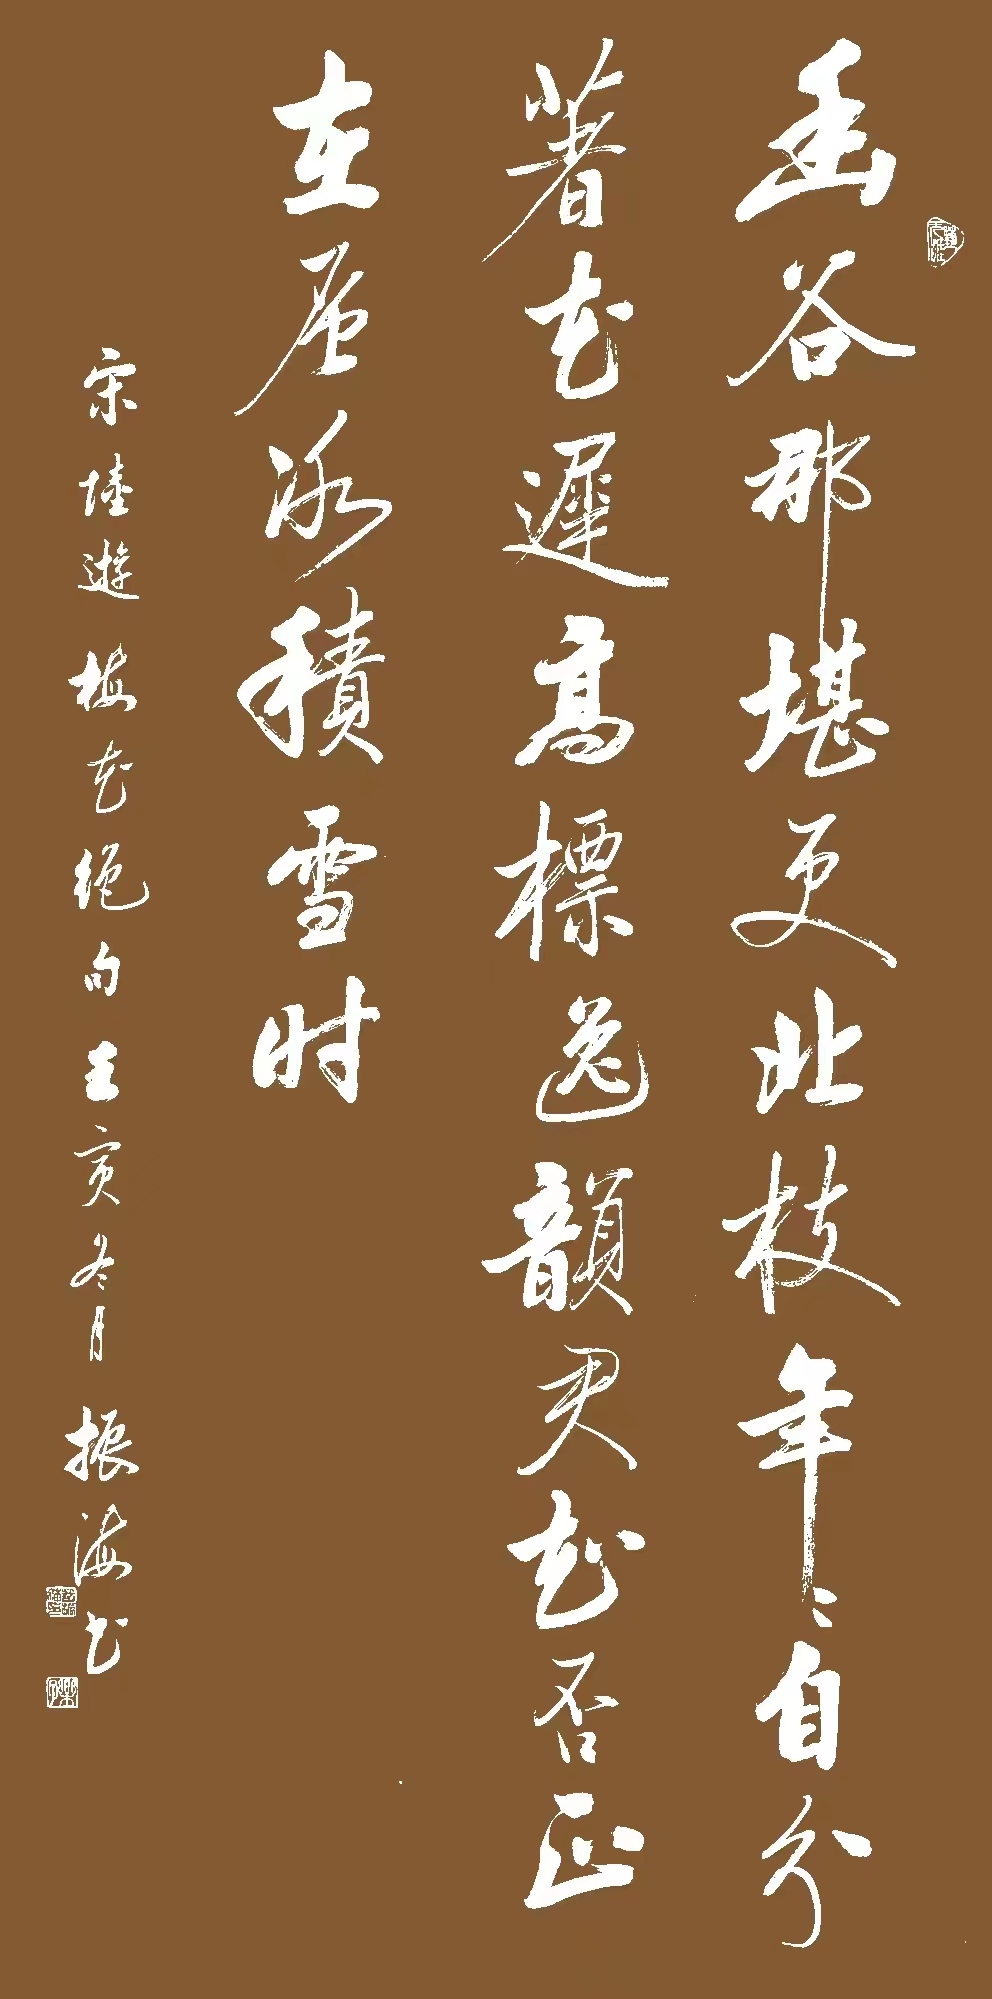 幽谷那堪更北枝年々自分
著花遲高標逸韻君知否正
在層冰積雪时
宋陸遊梅花绝句壬寅冬月振海书